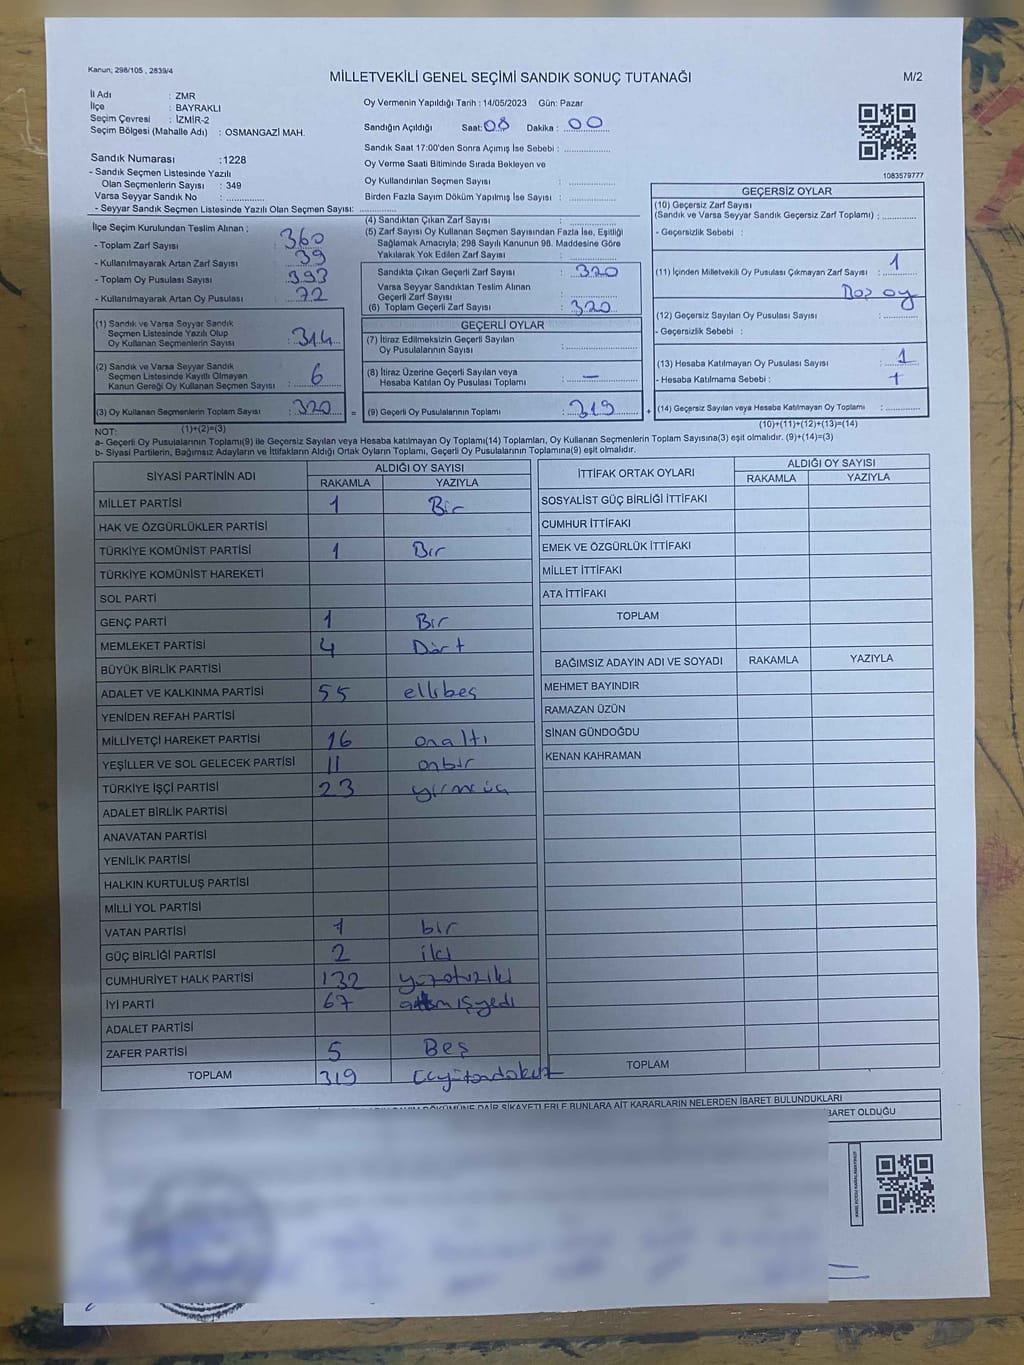 Kanun; 298/105 , 2839/4
MİLLETVEKİLİ GENEL SEÇİMİ SANDIK SONUÇ TUTANAĞI
M/2
İl Adı : ZMR
İlçe : BAYRAKLI
Seçim Çevresi : İZMİR-2
Seçim Bölgesi (Mahalle Adı) : OSMANGAZİ MAH.
Oy Vermenin Yapıldığı Tarih : 14/05/2023 Gün: Pazar
Sandığın Açıldığı Saat: 08 Dakika : 00
Sandık Saat 17:00'den Sonra Açımış İse Sebebi :
Oy Verme Saati Bitiminde Sırada Bekleyen ve
Oy Kullandırılan Seçmen Sayısı :
Birden Fazla Sayım Döküm Yapılmış İse Sayısı :
1083579777
Sandık Numarası :1228
- Sandık Seçmen Listesinde Yazılı
Olan Seçmenlerin Sayısı : 349
Varsa Seyyar Sandık No :
- Seyyar Sandık Seçmen Listesinde Yazılı Olan Seçmen Sayısı:
İlçe Seçim Kurulundan Teslim Alınan ;
- Toplam Zarf Sayısı : 360
- Kullanılmayarak Artan Zarf Sayısı : 39
- Toplam Oy Pusulası Sayısı : 393
- Kullanılmayarak Artan Oy Pusulası : 72
(1) Sandık ve Varsa Seyyar Sandık
Seçmen Listesinde Yazılı Olup
Oy Kullanan Seçmenlerin Sayısı : 314
(2) Sandık ve Varsa Seyyar Sandık
Seçmen Listesinde Kayıtlı Olmayan
Kanun Gereği Oy Kullanan Seçmen Sayısı : 6
(3) Oy Kullanan Seçmenlerin Toplam Sayısı : 320 =
(1)+(2)=(3)
(4) Sandıktan Çıkan Zarf Sayısı :
(5) Zarf Sayısı Oy Kullanan Seçmen Sayısından Fazla İse, Eşitliği
Sağlamak Amacıyla; 298 Sayılı Kanunun 98. Maddesine Göre
Yakılarak Yok Edilen Zarf Sayısı :
Sandıkta Çıkan Geçerli Zarf Sayısı : 320
Varsa Seyyar Sandıktan Teslim Alınan
Geçerli Zarf Sayısı :
(6) Toplam Geçerli Zarf Sayısı : 320
GEÇERLİ OYLAR
(7) İtiraz Edilmeksizin Geçerli Sayılan
Oy Pusulalarının Sayısı :
(8) İtiraz Üzerine Geçerli Sayılan veya
Hesaba Katılan Oy Pusulası Toplamı : -
(9) Geçerli Oy Pusulalarının Toplamı : 319 +
GEÇERSİZ OYLAR
(10) Geçersiz Zarf Sayısı
(Sandık ve Varsa Seyyar Sandık Geçersiz Zarf Toplamı) :
- Geçersizlik Sebebi :
(11) İçinden Milletvekili Oy Pusulası Çıkmayan Zarf Sayısı : 1
Boş oy
(12) Geçersiz Sayılan Oy Pusulası Sayısı :
- Geçersizlik Sebebi :
(13) Hesaba Katılmayan Oy Pusulası Sayısı : 1
- Hesaba Katılmama Sebebi : +
(14) Geçersiz Sayılan veya Hesaba Katılmayan Oy Toplamı :
(10)+(11)+(12)+(13)=(14)
NOT:
a- Geçerli Oy Pusulalarının Toplamı(9) ile Geçersiz Sayılan veya Hesaba katılmayan Oy Toplamı(14) Toplamları, Oy Kullanan Seçmenlerin Toplam Sayısına(3) eşit olmalıdır. (9)+(14)=(3)
b- Siyasi Partilerin, Bağımsız Adayların ve İttifakların Aldığı Ortak Oyların Toplamı, Geçerli Oy Pusulalarının Toplamına(9) eşit olmalıdır.
SİYASİ PARTİNİN ADI
ALDIĞI OY SAYISI
RAKAMLA YAZIYLA
MİLLET PARTİSİ 1 Bir
HAK VE ÖZGÜRLÜKLER PARTİSİ
TÜRKİYE KOMÜNİST PARTİSİ 1 Bir
TÜRKİYE KOMÜNİST HAREKETİ
SOL PARTİ
GENÇ PARTİ 1 Bir
MEMLEKET PARTİSİ 4 Dört
BÜYÜK BİRLİK PARTİSİ
ADALET VE KALKINMA PARTİSİ 55 ellibeş
YENİDEN REFAH PARTİSİ
MİLLİYETÇİ HAREKET PARTİSİ 16 onaltı
YEŞİLLER VE SOL GELECEK PARTİSİ 11 onbir
TÜRKİYE İŞÇİ PARTİSİ 23
ADALET BİRLİK PARTİSİ
ANAVATAN PARTİSİ
YENİLİK PARTİSİ
HALKIN KURTULUŞ PARTİSİ
MİLLİ YOL PARTİSİ
VATAN PARTİSİ 1 bir
GÜÇ BİRLİĞİ PARTİSİ 2 iki
CUMHURİYET HALK PARTİSİ 132 yüzotuziki
İYİ PARTİ 67 altmışyedi
ADALET PARTİSİ
ZAFER PARTİSİ 5 Beş
TOPLAM 319
İTTİFAK ORTAK OYLARI
ALDIĞI OY SAYISI
RAKAMLA YAZIYLA
SOSYALİST GÜÇ BİRLİĞİ İTTİFAKI
CUMHUR İTTİFAKI
EMEK VE ÖZGÜRLÜK İTTİFAKI
MİLLET İTTİFAKI
ATA İTTİFAKI
TOPLAM
BAĞIMSIZ ADAYIN ADI VE SOYADI RAKAMLA YAZIYLA
MEHMET BAYINDIR
RAMAZAN ÜZÜN
SİNAN GÜNDOĞDU
KENAN KAHRAMAN
TOPLAM
DÖKÜMÜNE DAİR ŞİKAYETLERLE BUNLARA AİT KARARLARIN NELERDEN İBARET BULUNDUKLARI
İBARET OLDUĞU